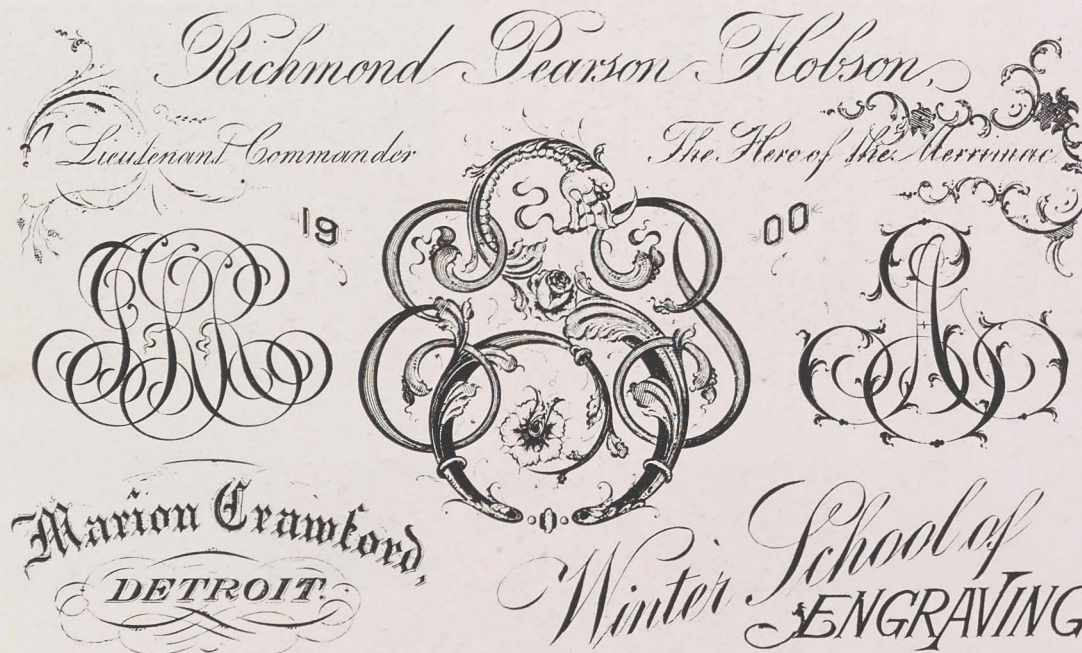 Richmond Pearson Hobson,
Lieutenant Commander The Hero of the Merrimac
19 00
Marion Crawford,
DETROIT.
Winter School of
ENGRAVING